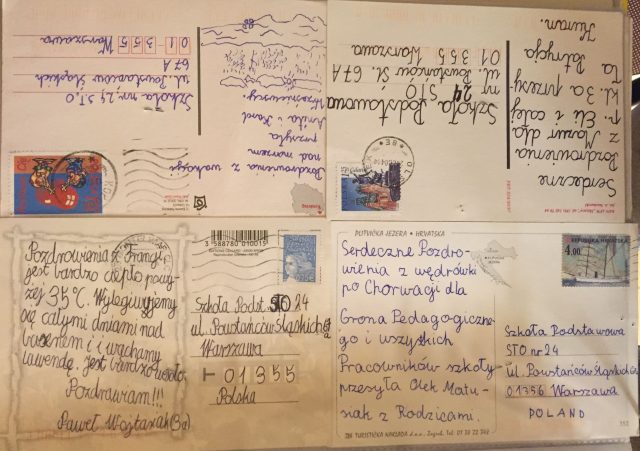 Pozdrowienia z wakacji
nad morzem
Anita i Karol
Szkoła nr. 24 S.T.O
ul. Powstańców Śląskich
67A
01-355
Warszawa
Serdeczne
Pozdrowienia
z Mazur dla
p. Eli i całej
kl. 3a
Patrycja
Szkoła Podstawowa
nr 24 STO
ul. Powstańców Śl. 67A
01 355 Warszawa
Pozdrowienia z
jest bardzo ciepło powy-
żej 35°C. Wylegiwujemy
się całymi dniami nad
basenem i wąchamy
lawendę. Jest bardzo
Pozdrawiam!!!
Paweł Wojtasiak (3a)
3 588780 010015
Szkoła Podst. STO 24
ul. Powstańców Śląskich
Warszawa
01355
Polska
PLITVIČKA JEZERA • HRVATSKA
4,00
Serdeczne Pozdro-
wienia z wędrówki
po Chorwacji dla
Grona Pedagogiczne-
go i wszystkich
Pracowników szkoły
przesyła Olek Matu-
siak z Rodzicami.
Szkoła Podstawowa
STO nr 24
ul. Powstańców Śląskich
01356 Warszawa
POLAND